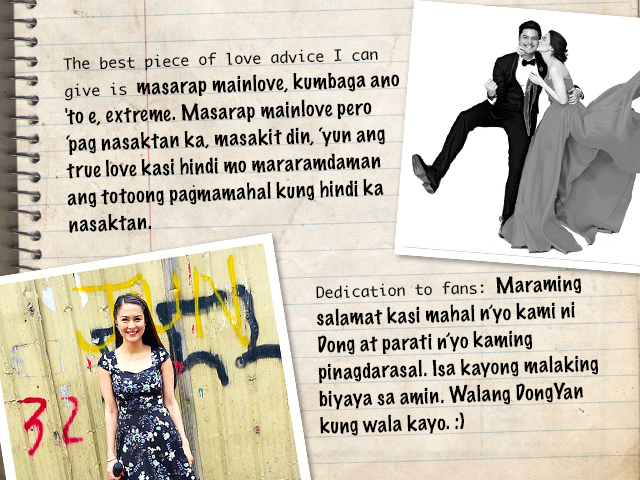 The best piece of love advice I can
give is masarap mainlove, kumbaga ano
'to e, extreme. Masarap mainlove pero
'pag nasaktan ka, masakit din, 'yun ang
true love kasi hindi mo mararamdaman
ang totoong pagmamahal kung hindi ka
nasaktan.
Dedication to fans: Maraming
salamat kasi mahal n'yo kami ni
Dong at parati n'yo kaming
pinagdarasal. Isa kayong malaking
biyaya sa amin. Walang DongYan
kung wala kayo. :)
JUN
32